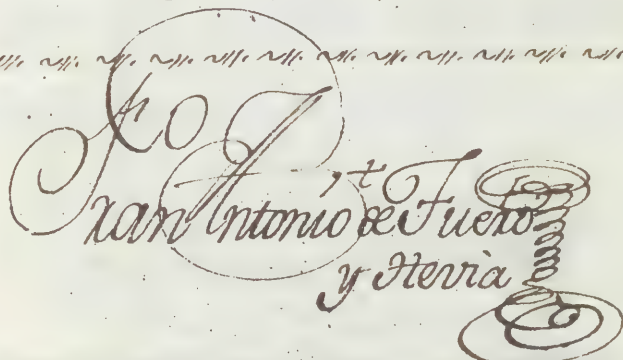 Fran^co Antonio de Fuero
y Hevia